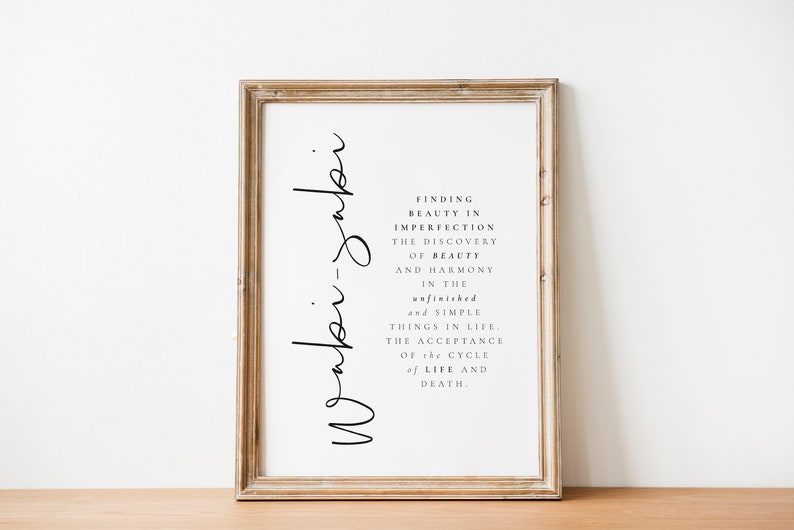 Wabi-sabi
FINDING
BEAUTY IN
IMPERFECTION
THE DISCOVERY
OF BEAUTY
AND HARMONY
IN THE
unfinished
and SIMPLE
THINGS IN LIFE.
THE ACCEPTANCE
OF the CYCLE
of LIFE AND
DEATH.